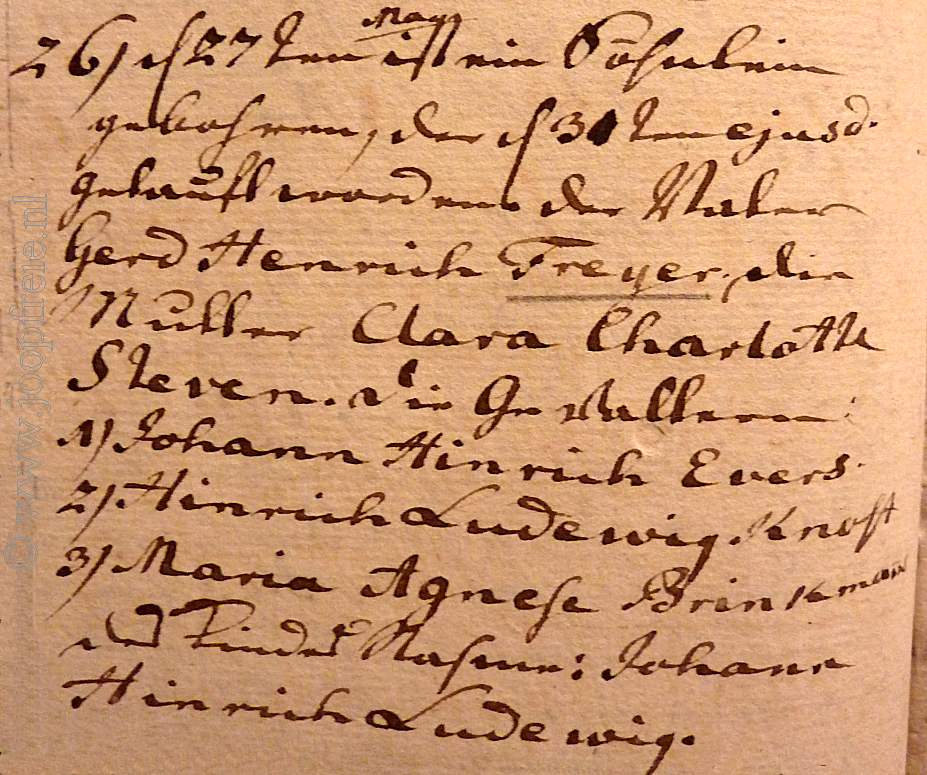 May
26) d 27ten ist ein Söhnlein
gebohren, der d 31ten ejusd.
getauft worden. der Vater
Gerd Henrich Freyer, die
Mutter Clara Charlotte
Steven. die Gevattern:
1) Johann Hinrich Evers.
2) Hinrich Ludewig Knost
3) Maria Agnese Brinkman
des Kindes Nahme: Johann
Hinrich Ludewig.
© www.joopfreie.nl